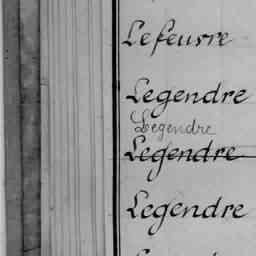 Lefeuvre
Legendre
Legendre
Legendre
Legendre